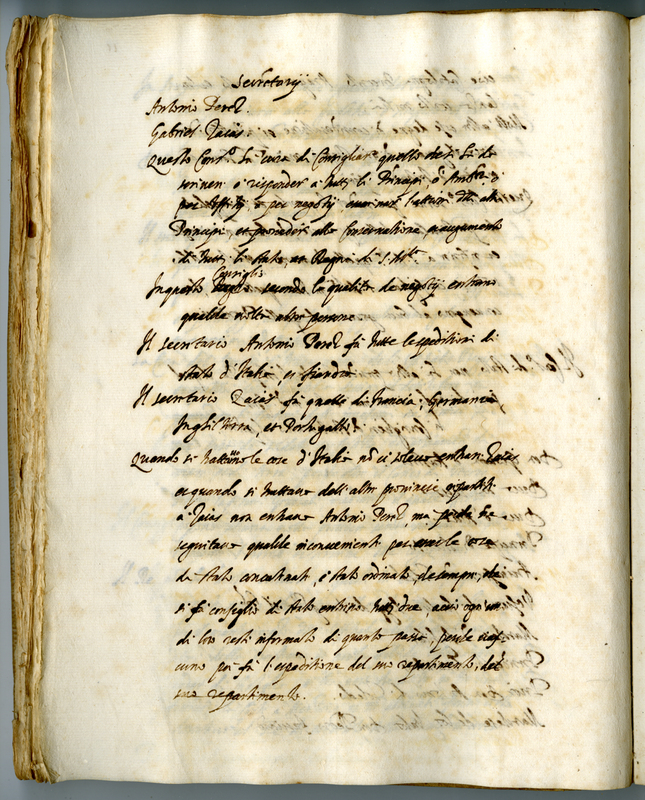 Secretarij
Antonio Perez.
Gabriel Zaias.
Questo Cons.º fa cura di Consigliar quello che si ha da
scriver o risponder a tutti li Principi, o Amb.ri
per negotij
Principi, et proveder alla conservatione, et augumento
di tutti li stati, et Regni di S. M.tà
In questo Consiglio secondo la qualità de negotij entrano
qualche volta altre persone
Il secretario Antonio Perez fa tutte le espeditioni di
stato d'Italia, et fiandra
Il secretario Zaias fa quelle di francia, Germania
Inghilterra, et Portugallo.
Quando si trattavano le cose d'Italia nō ci soleva entrar Zaias
et quando si trattava dell'altre provincie
a Zaias non entrava Antonio Perez ma perche ne
seguitava qualche inconveniente per le cose
di stato concatenate, è stato ordinato che sempre, che
si fa consiglio di stato entrino tutti due, acciò ogn'uno
di loro resti informato di quanto passa, perche cias
cuno poi fa l'espeditione del suo repartimento, del
suo repartimento.